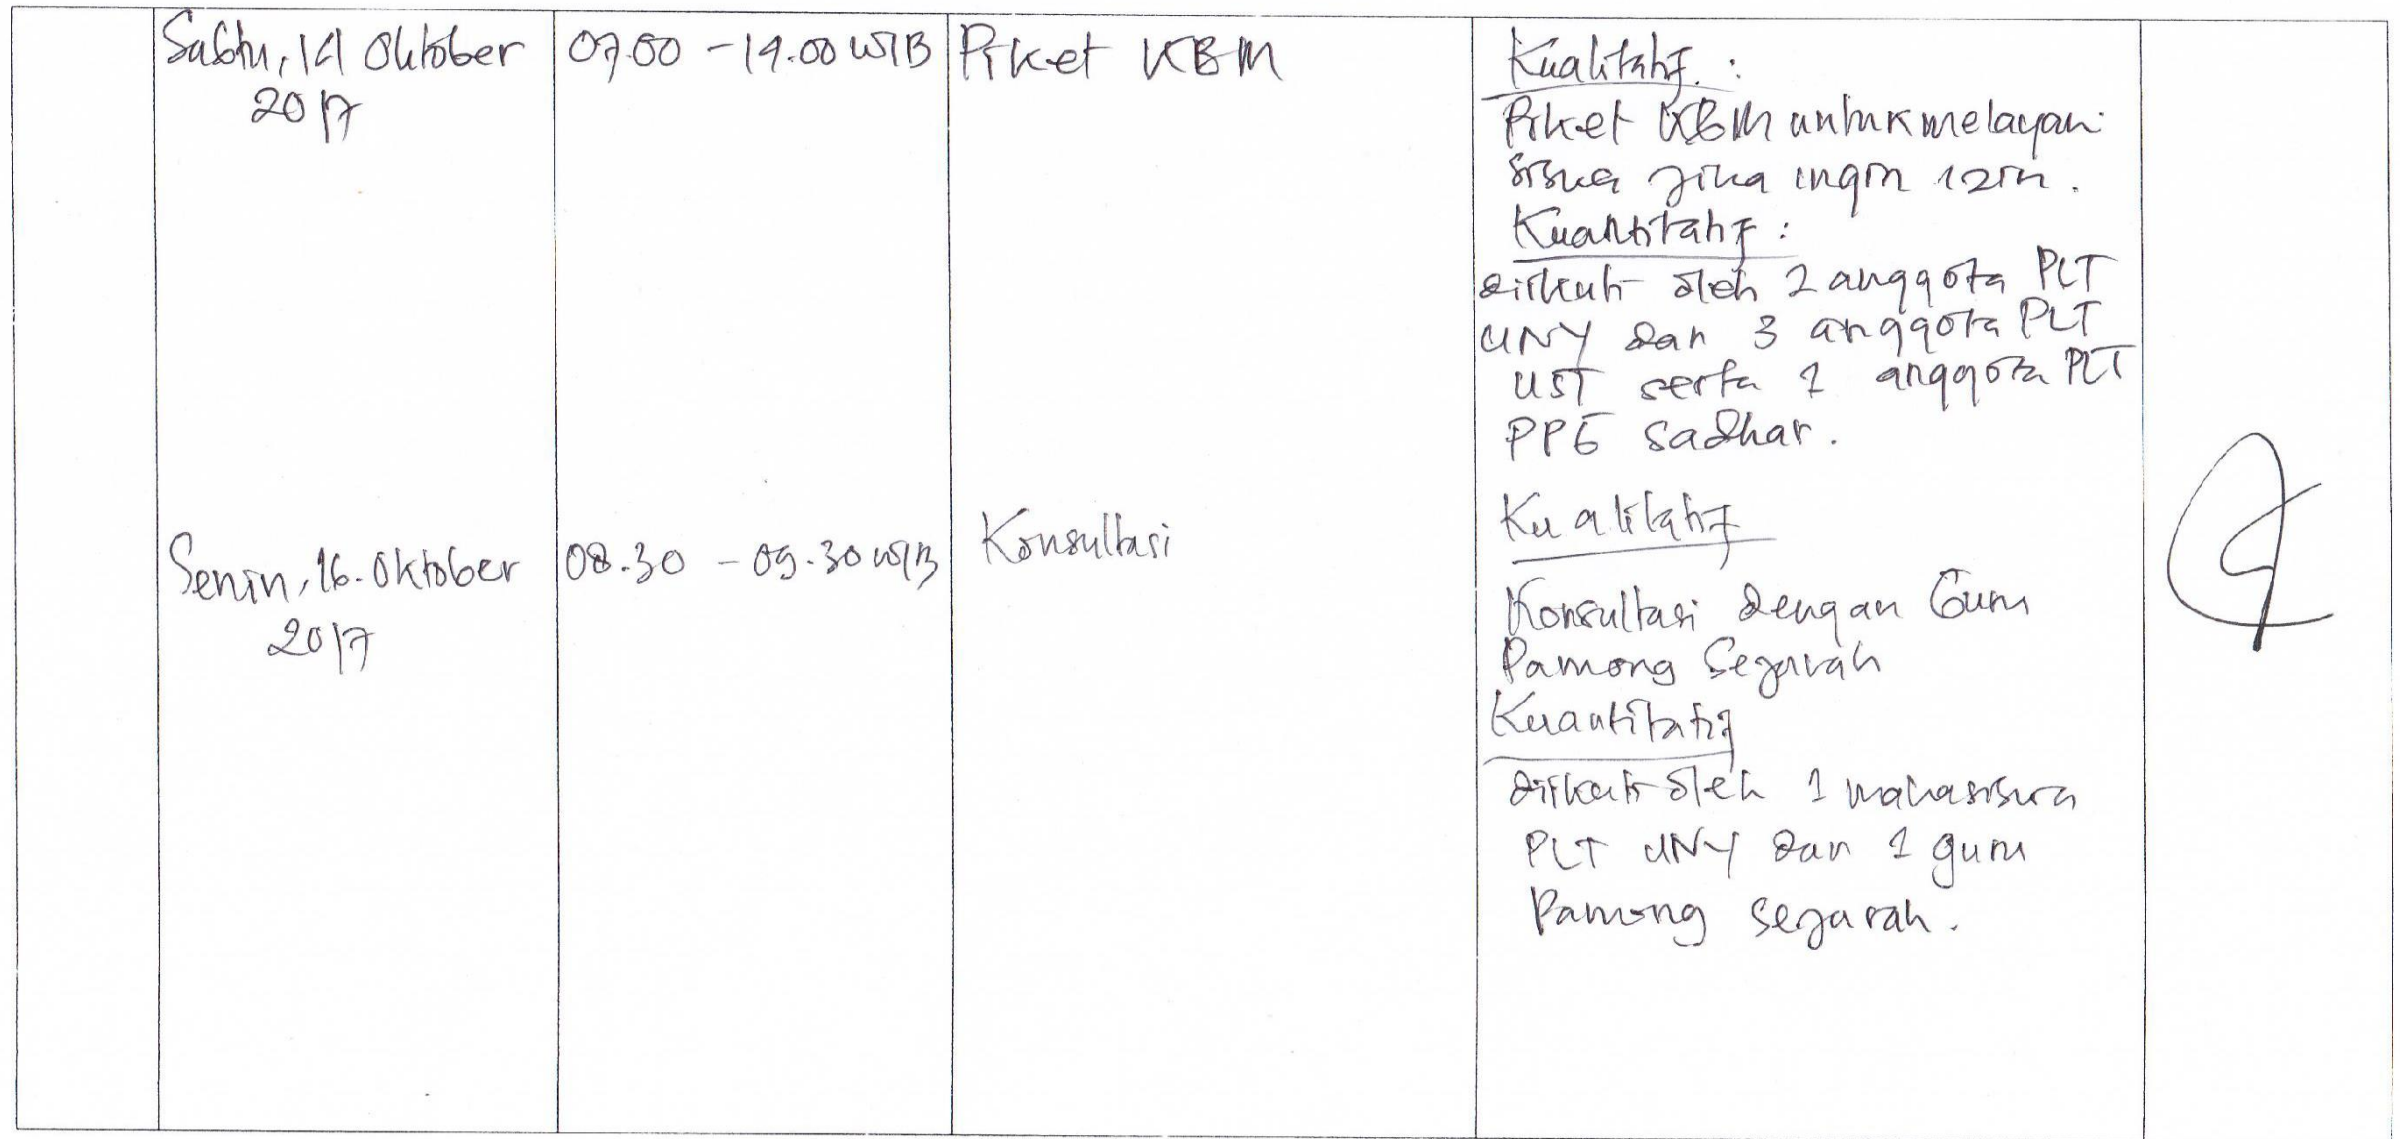 Sabtu, 14 Oktober
2017
07.00 - 14.00 WIB
Piket KBM
Kualitatif :
Piket KBM untuk melayani
siswa jika ingin izin.
Kuantitatif :
diikuti oleh 2 anggota PLT
UNY dan 3 anggota PLT
UST serta 1 anggota PLT
PPG Sadhar.
Senin, 16. Oktober
2017
08.30 - 09.30 WIB
Konsultasi
Kualitatif
Konsultasi dengan Guru
Pamong Sejarah
Kuantitatif
diikuti oleh 1 mahasiswa
PLT UNY dan 1 guru
Pamong sejarah.